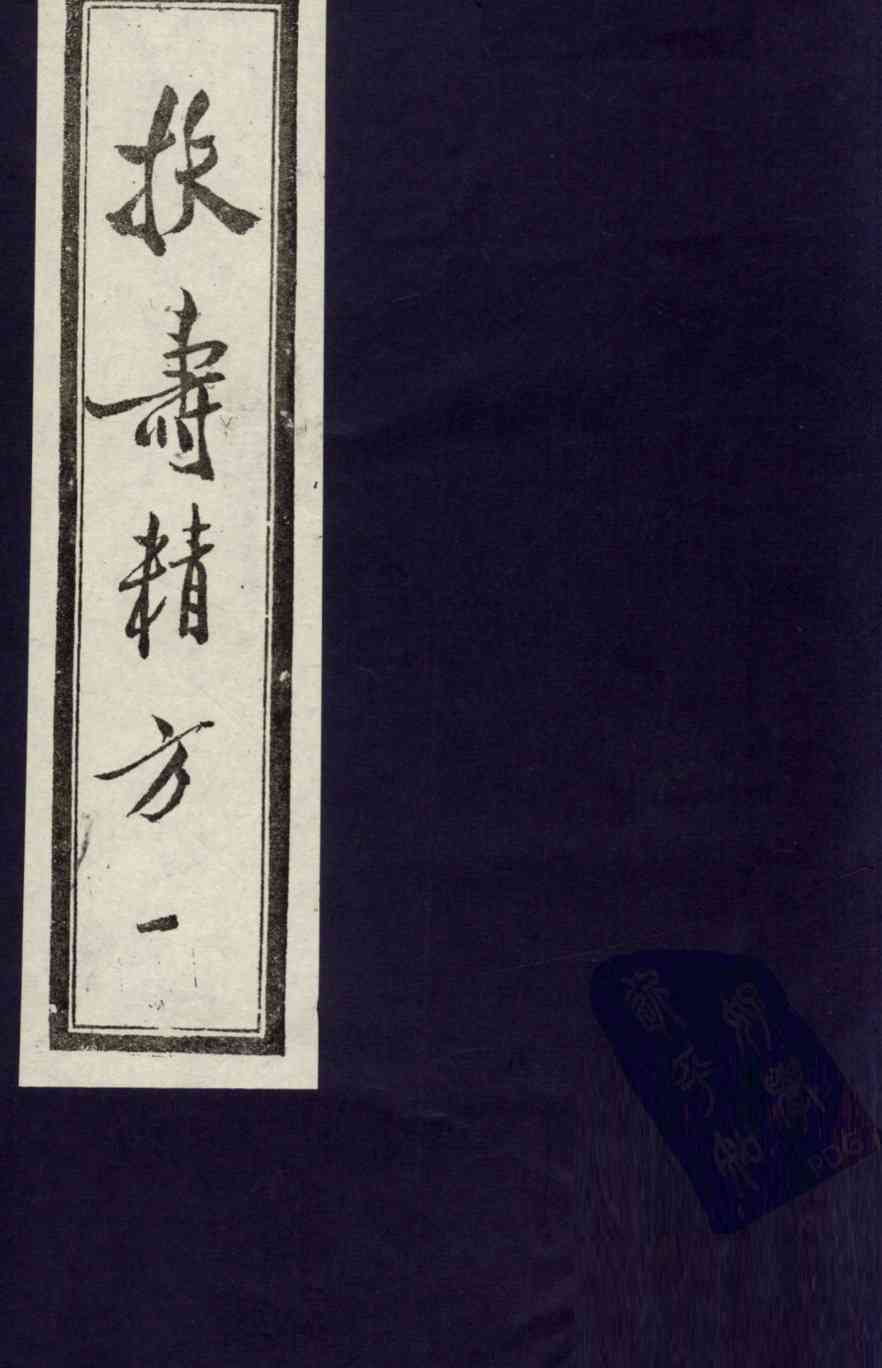 扶壽精方 一
PDG